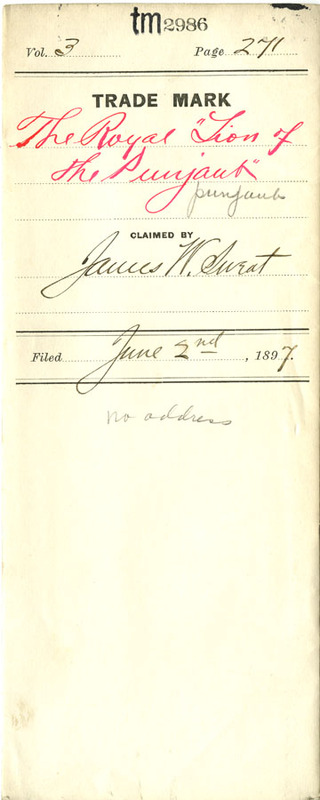 tm2986
Vol. 3 Page 271
TRADE MARK
The Royal "Lion of
the Punjaub"
punjaub
CLAIMED BY
James W. Sweat
Filed June 2nd, 1897.
no address